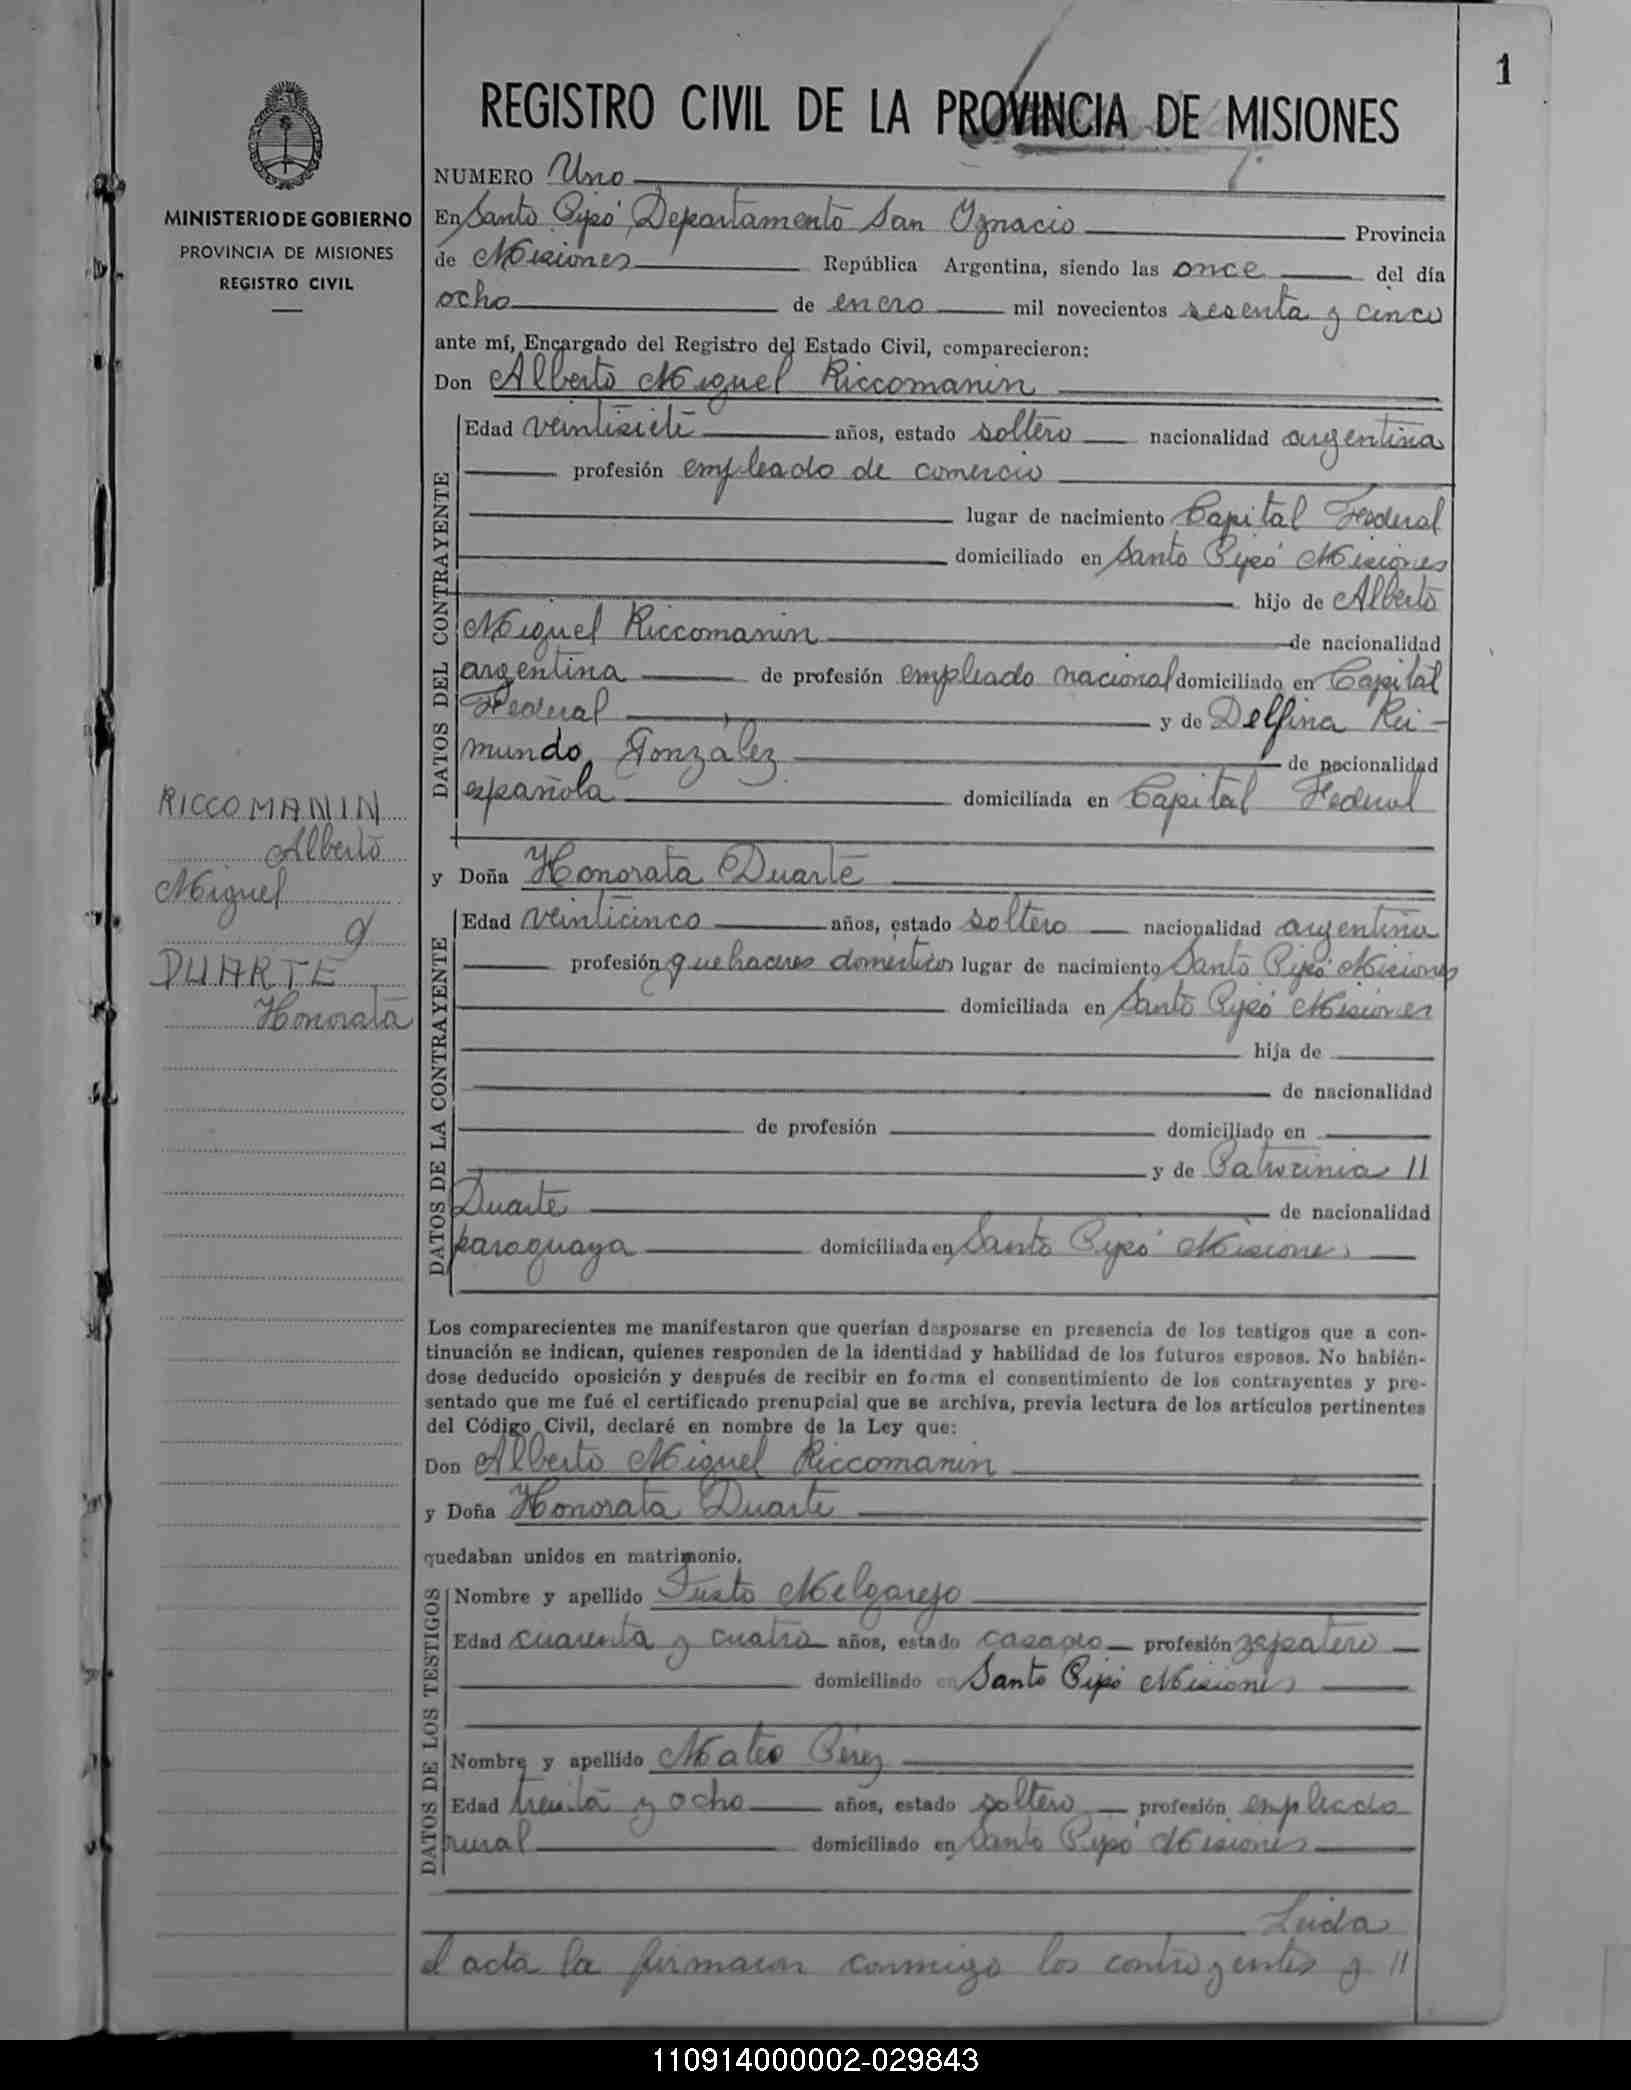 1
REGISTRO CIVIL DE LA PROVINCIA DE MISIONES
MINISTERIO DE GOBIERNO
PROVINCIA DE MISIONES
REGISTRO CIVIL
RICCOMANIN
Alberto
Miguel
y
DUARTE
Honorata
NUMERO Uno
En Santo Pipó Departamento San Ignacio Provincia
de Misiones República Argentina, siendo las once del día
ocho de enero mil novecientos sesenta y cinco
ante mí, Encargado del Registro del Estado Civil, comparecieron:
Don Alberto Miguel Riccomanin
DATOS DEL CONTRAYENTE
Edad veintisiete años, estado soltero nacionalidad argentina
profesión empleado de comercio
lugar de nacimiento Capital Federal
domiciliado en Santo Pipó Misiones
hijo de Alberto
Miguel Riccomanin de nacionalidad
argentina de profesión empleado nacional domiciliado en Capital
Federal y de Delfina Rei-
mundo González de nacionalidad
española domiciliada en Capital Federal
y Doña Honorata Duarte
DATOS DE LA CONTRAYENTE
Edad veinticinco años, estado soltero nacionalidad argentina
profesión quehaceres domésticos lugar de nacimiento Santo Pipó Misiones
domiciliada en Santo Pipó Misiones
hija de
de nacionalidad
de profesión domiciliado en
y de Patrocinia //
Duarte de nacionalidad
paraguaya domiciliada en Santo Pipó Misiones
Los comparecientes me manifestaron que querían desposarse en presencia de los testigos que a con-
tinuación se indican, quienes responden de la identidad y habilidad de los futuros esposos. No habién-
dose deducido oposición y después de recibir en forma el consentimiento de los contrayentes y pre-
sentado que me fué el certificado prenupcial que se archiva, previa lectura de los artículos pertinentes
del Código Civil, declaré en nombre de la Ley que:
Don Alberto Miguel Riccomanin
y Doña Honorata Duarte
quedaban unidos en matrimonio.
DATOS DE LOS TESTIGOS
Nombre y apellido Justo Melgarejo
Edad cuarenta y cuatro años, estado casado profesión zapatero
domiciliado en Santo Pipó Misiones
Nombre y apellido Mateo Pérez
Edad treinta y ocho años, estado soltero profesión empleado
rural domiciliado en Santo Pipó Misiones
Leida
el acta la firmaron conmigo los contrayentes y //
110914000002-029843